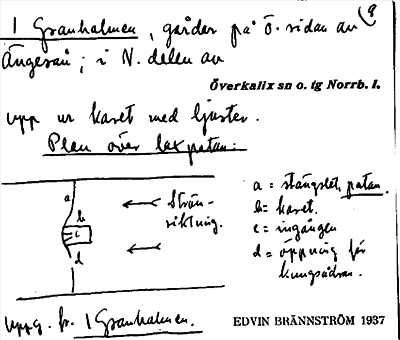 9
1 Granholmen, gården på ö. sidan av
Ängesån; i N. delen av
Överkalix sn o. tg Norrb. l.
upp ur karet med ljuster.
Plan över laxpatan:
a
b
c
d
Ström-
riktning.
a = stängslet, patan.
b = karet.
c = ingången
d = öppning för
kungsådran.
Uppg. fr. 1 Granholmen.
EDVIN BRÄNNSTRÖM 1937